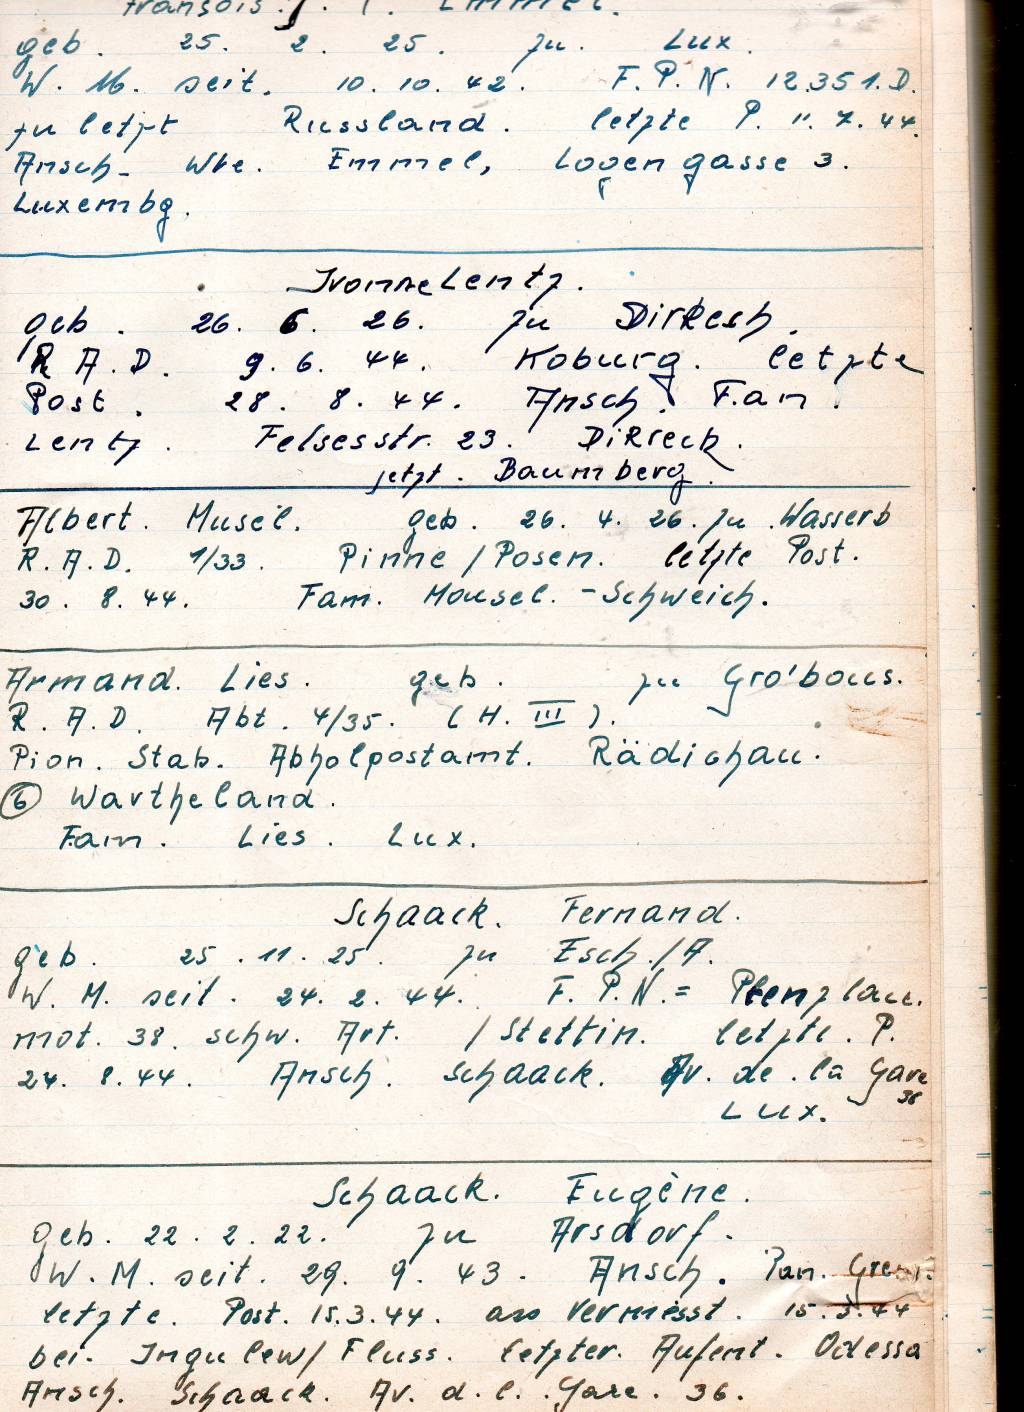 François. J. Emmel.
geb. 25. 2. 25. zu. Lux.
W. M. seit. 10. 10. 42. F. P. N. 12.351.D.
zu letzt Russland. letzte P. 11. 7. 44.
Ansch- Wte. Emmel, Logengasse 3.
Luxembg.
Ivonne Lentz.
geb. 26. 6. 26. zu Dirkesch.
R. A. D. 9. 6. 44. Koburg. letzte
Post. 28. 8. 44. Ansch. Fam.
Lentz. Felsesstr. 23. Dikreck.
jetzt. Baumberg.
Albert. Musel. geb. 26. 4. 26. zu Wasserb
R. A. D. 1/33. Pinne /Posen. letzte Post.
30. 8. 44. Fam. Mousel. - Schweich.
Armand. Lies. geb. zu Gro'bous.
R. A. D. Abt. 4/35. (H. III).
Pion. Stab. Abholpostamt. Rädichau.
6 Wartheland.
Fam. Lies. Lux.
Schaack. Fernand.
geb. 25. 11. 25. zu Esch./A.
W. M. seit. 24. 2. 44. F. P. N. =
mot. 38. schw. Art. /Stettin. letzte. P.
24. 8. 44. Ansch. Schaack. Av. de. la Gare
38
Lux.
Schaack. Eugène.
geb. 22. 2. 22. zu Arsdorf.
W. M. seit. 29. 9. 43. Ansch. Pan. Gren.
letzte. Post. 15.3.44 als vermisst. 15.3.44
bei. Ingulew/Fluss. letzter. Aufent. Odessa
Ansch. Schaack. Av. d. l. Gare. 36.